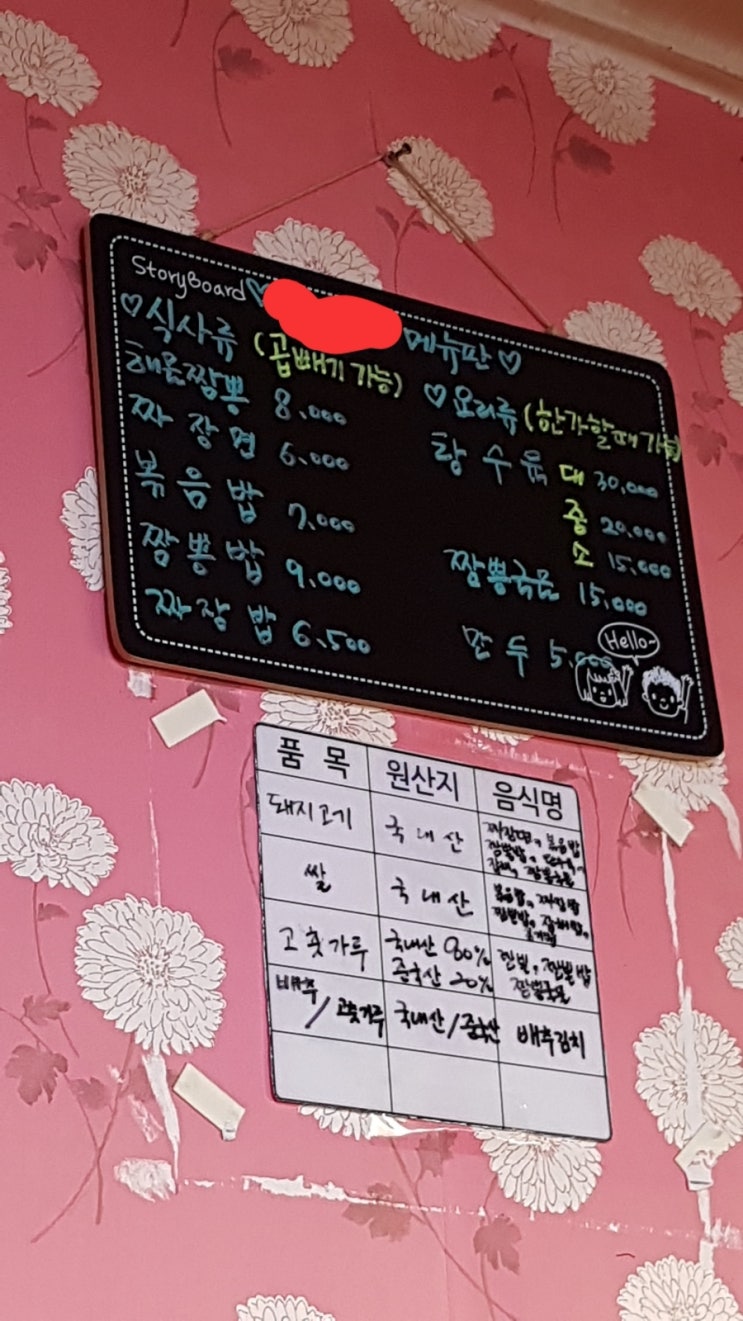 StoryBoard♡
메뉴판♡
♡식사류 (곱빼기 가능)
해물짬뽕 8.000
짜장면 6.000
볶음밥 7.000
짬뽕밥 9.000
짜장밥 6.500
♡요리류 (한가할때 가능)
탕수육 대 30,000
중 20,000
소 15,000
짬뽕국물 15,000
만두 5.000
Hello~
품목 원산지 음식명
돼지고기 국내산 짜장면, 볶음밥
쌀 국내산 볶음밥, 짜장밥
고춧가루 국내산 80%
중국산 20%
짬뽕, 짬뽕밥
짬뽕국물
배추/고춧가루 국내산/중국산 배추김치